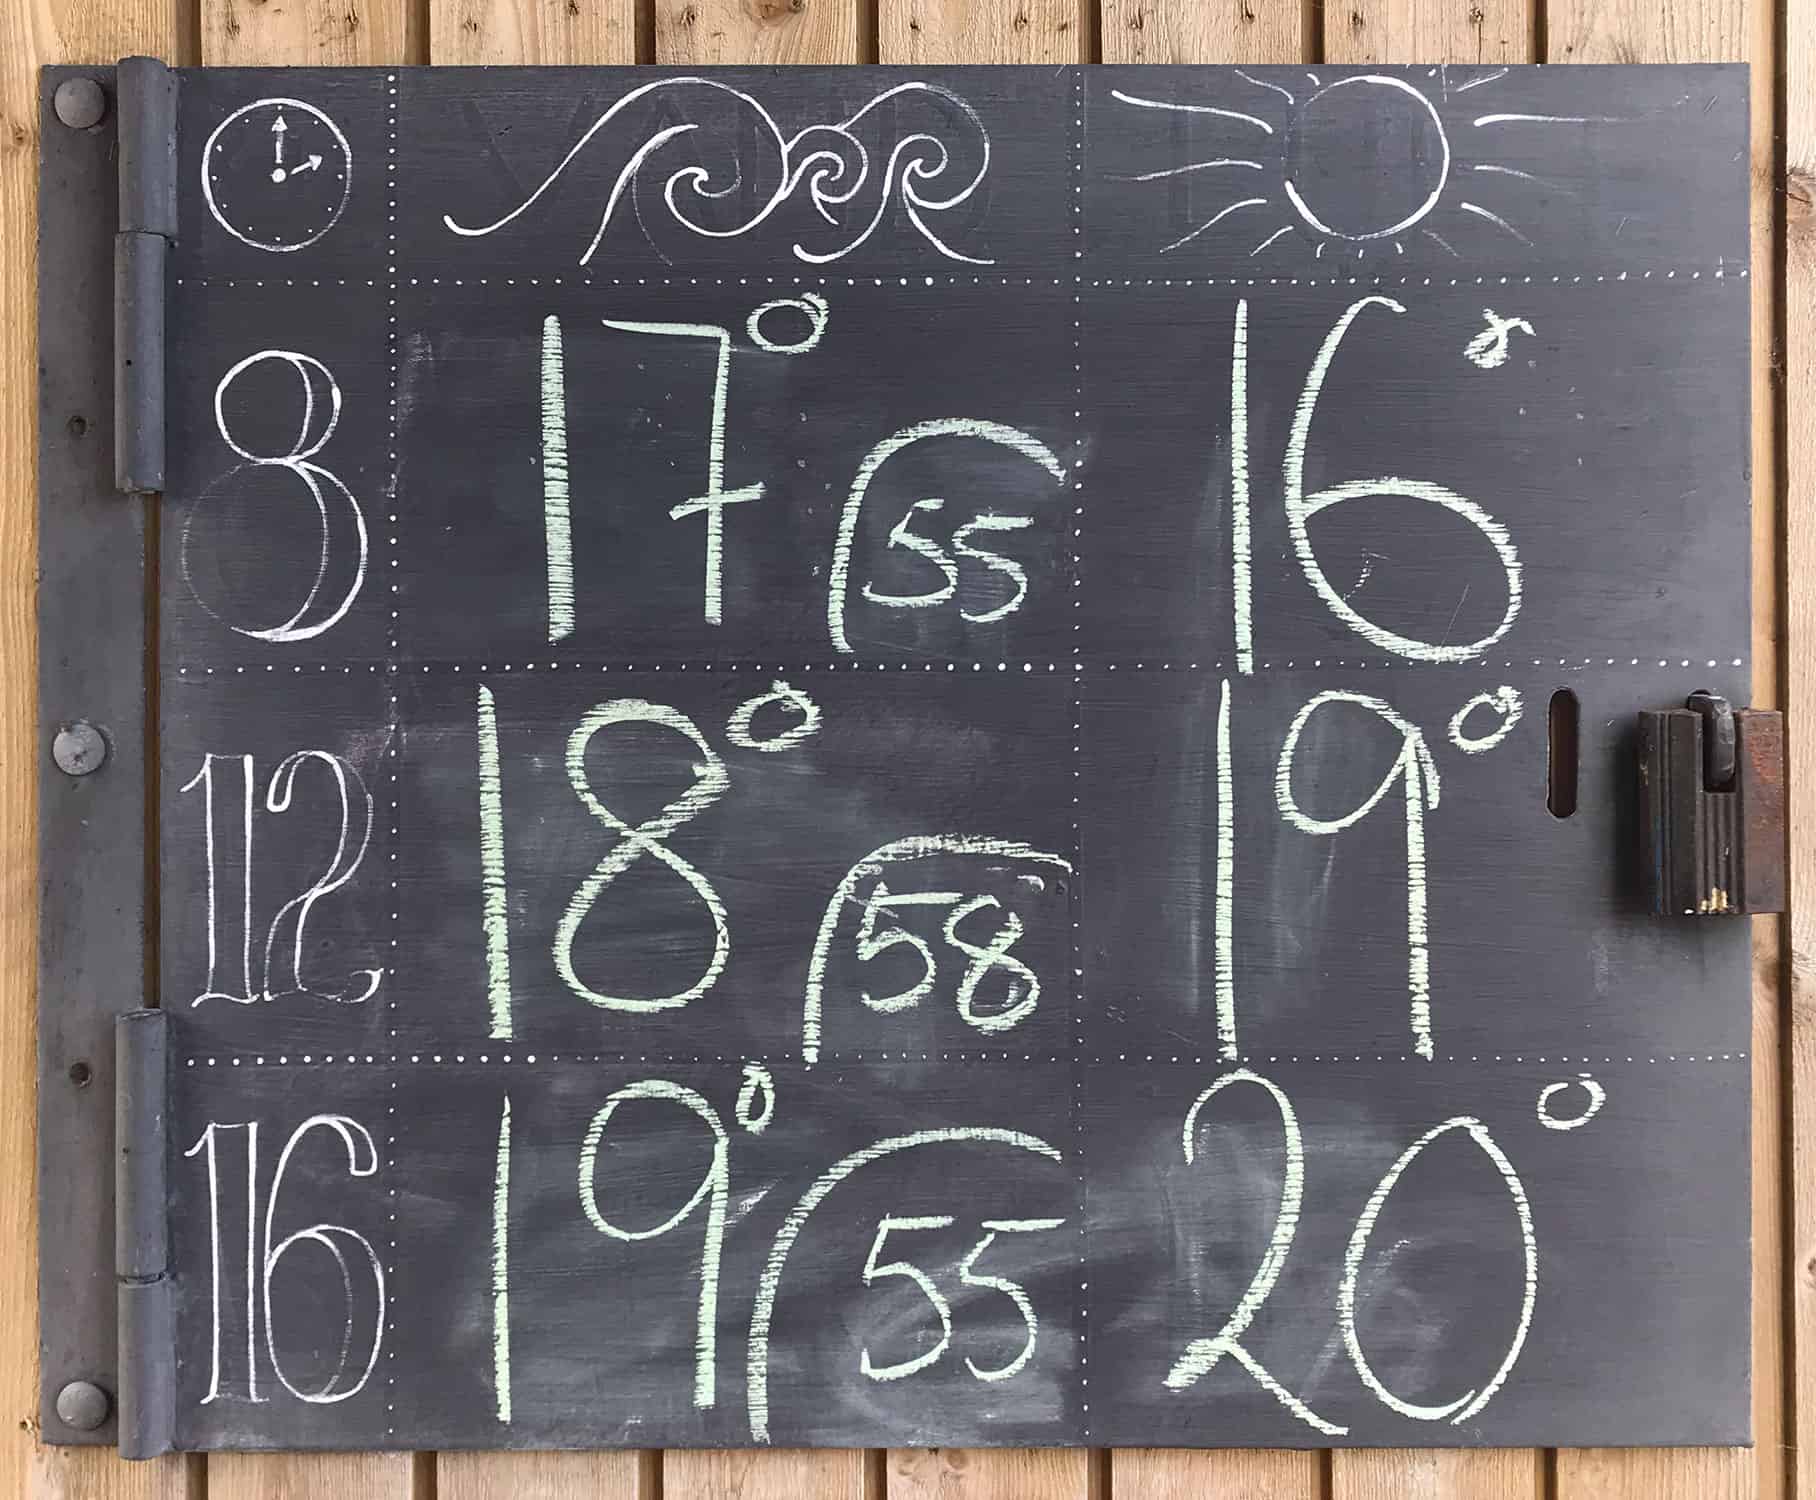 8 17° 55 16°
12 18° 58 19°
16 19° 55 20°